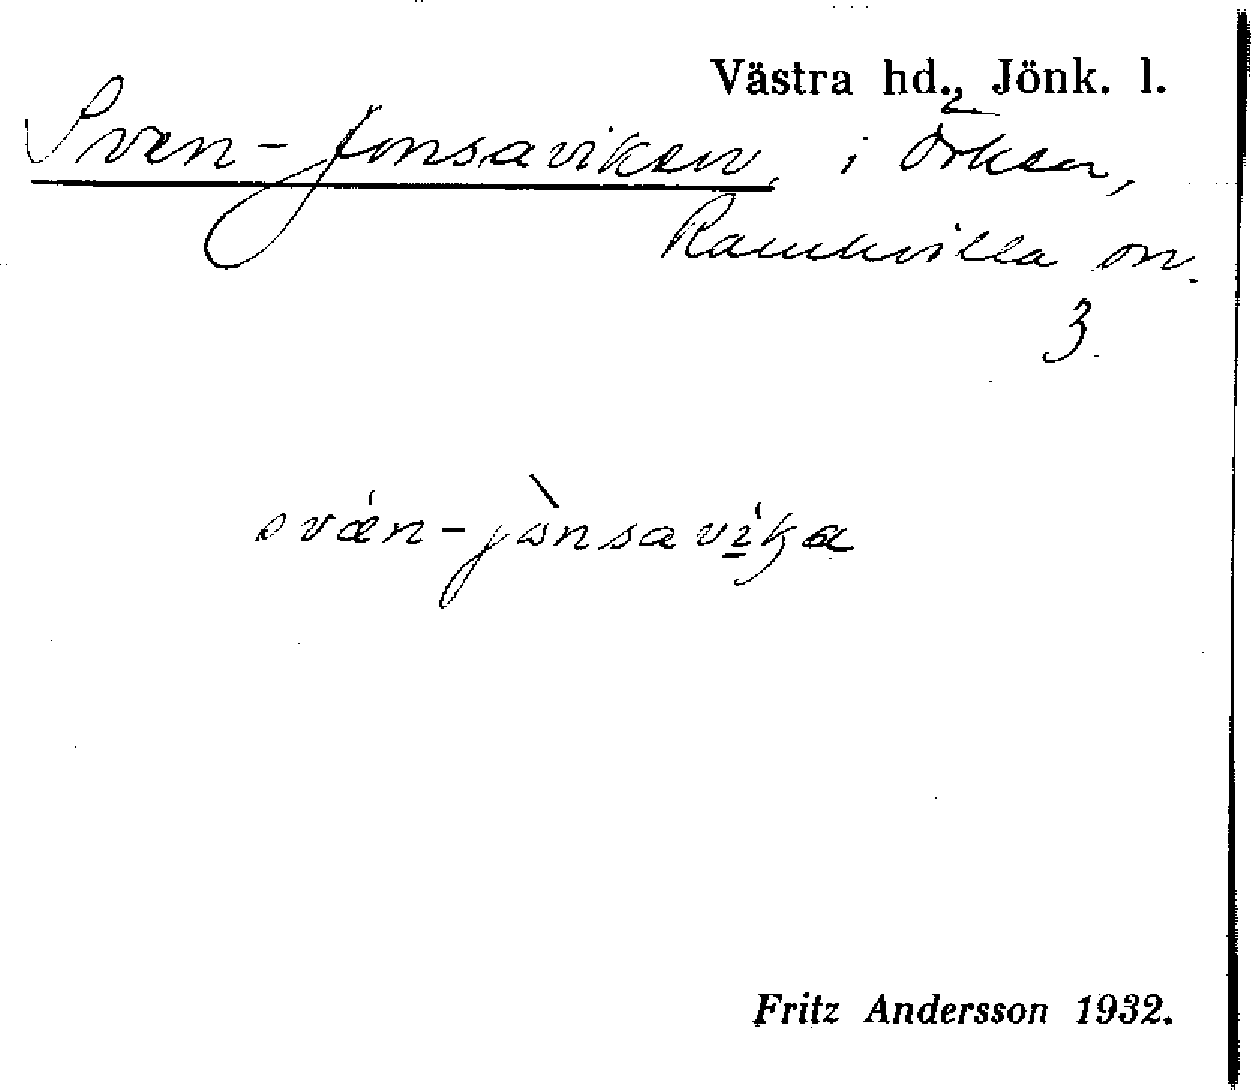 Västra hd., Jönk. l.
Sven-Jonsaviken, i Örken,
Ramkvilla sn.
3.
svǽn-jònsavíka
Fritz Andersson 1932.